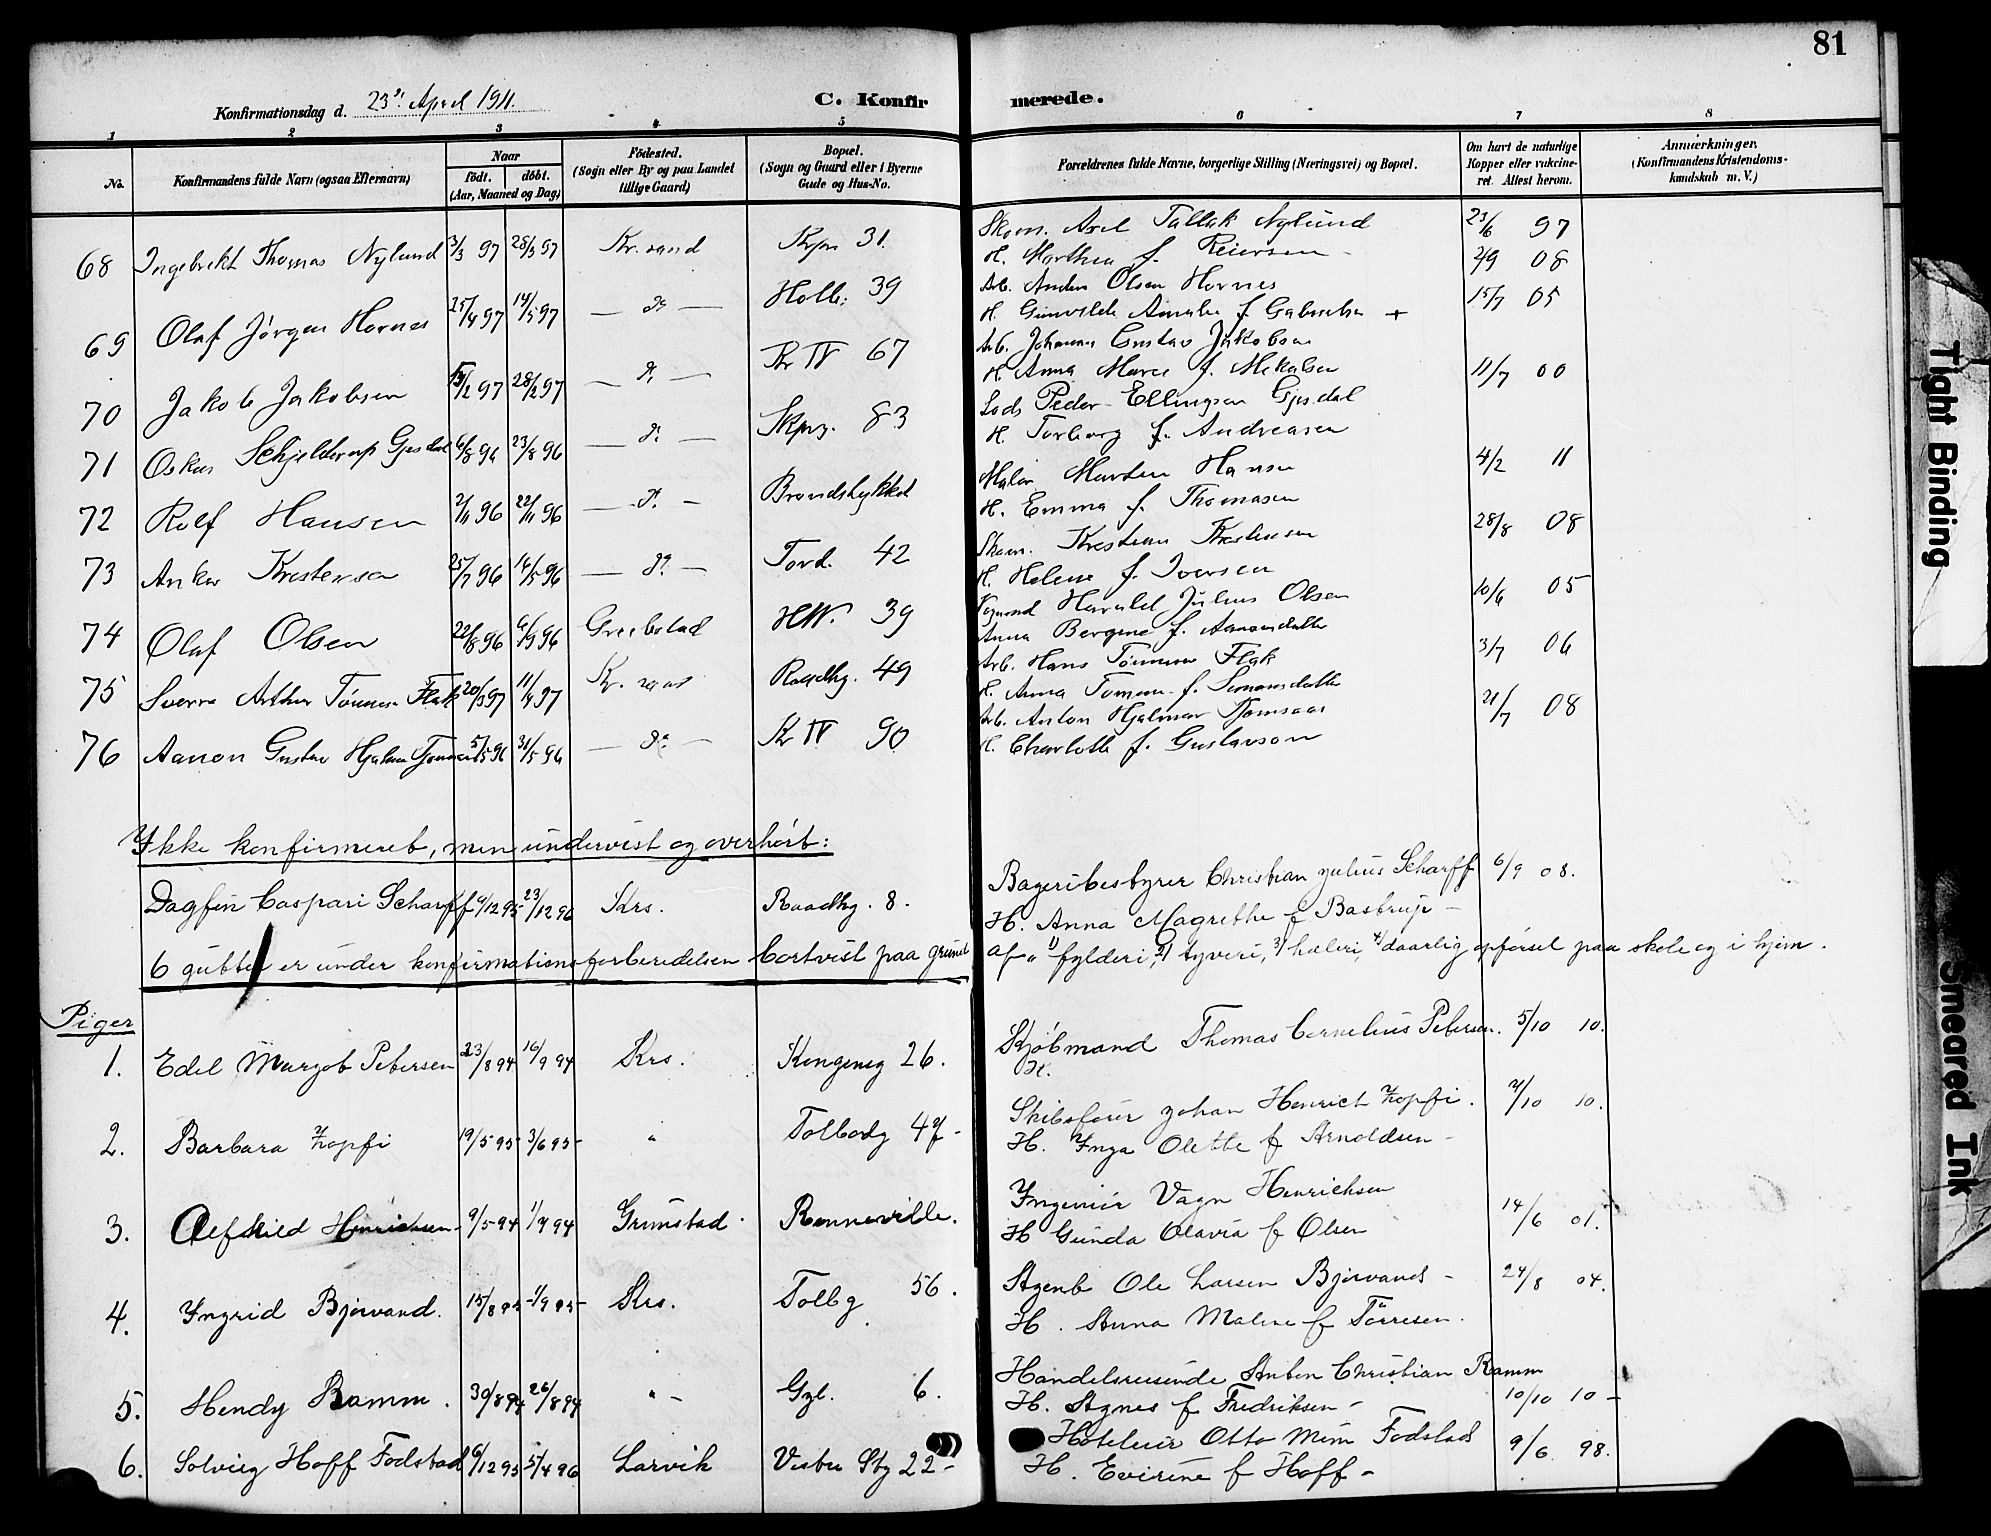 81
Konfirmationsdag d. 23de April 1911.
C. Konfirmerede.
1 2 3 4 5 6 7 8
No. Konfirmandens fulde Navn (ogsaa Efternavn) Naar født. døbt. (Aar, Maaned og Dag) Fødested. (Sogn eller By og paa Landet tillige Gaard) Bopæl. (Sogn og Gaard eller i Byerne Gade og Hus-No. Forældrenes fulde Navne, borgerlige Stilling (Næringsvei) og Bopæl. Om havt de naturlige Kopper eller vakcineret. Attest herom. Anmærkninger. (Konfirmandens Kristendomskundskab m. V.)
68 Ingebrekt Thomas Nylund 3/3 97 28/3 97 Kr.sand 31. Skom. Axel Tallak Nylund 23/6 97
H. Marthea f. Reiersen
69 Olaf Jørgen Hornes 25/4 97 14/5 97 — do — Holb. 39 Arb. Anders Olsen Hornes 2/9 08
H. Gunvalda Amalia f. +
70 Jakob Jakobsen 97 28/2 97 — do — Kr IV 67 Arb. Johannes Gustav Jakobsen 15/7 05
H. Anna Marie f. Mikalsen
71 Oskar Schjelderup Gjesdal 6/8 96 23/8 96 — do — Skprg. 83 Lods Peder Ellingsen Gjesdal 11/7 00
H. Torborg f. Andreasen
72 Rolf Hansen 2/11 96 22/11 96 — do — Brandstykket Maler Marten Hansen 4/2 11
H. Emma f. Thomasen
73 Anker Kristensen 25/7 96 16/5 96 — do — Tord. 42 Skom. Kristian Kristensen 28/8 08
H. Helene f. Iversen
74 Olaf Olsen 22/8 96 6/9 96 Greibstad HW. 39 Harald Julius Olsen 10/6 05
Anna Bergine f. Aanonsdatter
75 Sverre Arthur Tønnesen Flak 20/3 97 11/4 97 Kr. sand Raadhg. 49 Arb. Hans Tønnesen Flak 3/7 06
H. Anna Tomine f. Simonsdatter
76 Aanon Gustav Hjalmar Tjomsaas 5/5 96 31/5 96 — do — Kr IV 90 Arb. Anton Hjalmar Tjomsaas 21/7 08
H. Charlotte f. Gustavson
Ikke konfirmeret, men undervist og overhørt:
Dagfin Caspari Scharff 9/12 95 23/12 96 Krs. Raadhg. 8. Bageribestyrer Christian Julius Scharff 6/9 08.
H. Anna Magrethe f Bastrup —
6 gutter er under konfirmationsforberedelsen bortvist paa grund af 1) fylderi, 2) tyveri, 3) hæleri, 4) daarlig opførsel paa skole og i hjem.
Piger
1. Edel Margot Petersen 23/8 94 16/9 94 Krs. Kongensg 26. Kjøbmand Thomas Cornelius Petersen. 5/10 10.
H.
2. Barbara Zopfi 19/5 95 3/6 95 " Tolbodg 47 - Skibsfører Johan Henrich Zopfi. 7/10 10.
H. Inga Olette f Arnoldsen —
3. Alfhild Henrichsen 9/5 94 1/7 94 Grimstad. Renneville. Ingeniør Vagn Henrichsen 14/6 01.
H Gunda Olavia f Olsen
4. Ingrid Bjørvand. 15/8 95 1/9 95 Krs. Tolbg 56. Agent Ole Larsen Bjørvand - 24/8 04.
H. Anna Malene f Tørresen.
5. Hendy Ramm. 30/8 94 26/8 94 " - Gyl. 6. Handelsreisende Anton Christian Ramm
H. Agnes f Fredriksen - 10/10 10 -
6. Solveig Hoff Fodstad 6/12 95 5/4 96 Larvik Vestre Stg 22 - Hoteleier Otto Fodstad 9/6 98.
H. Evirine f Hoff -
Tight Binding
Smeared Ink